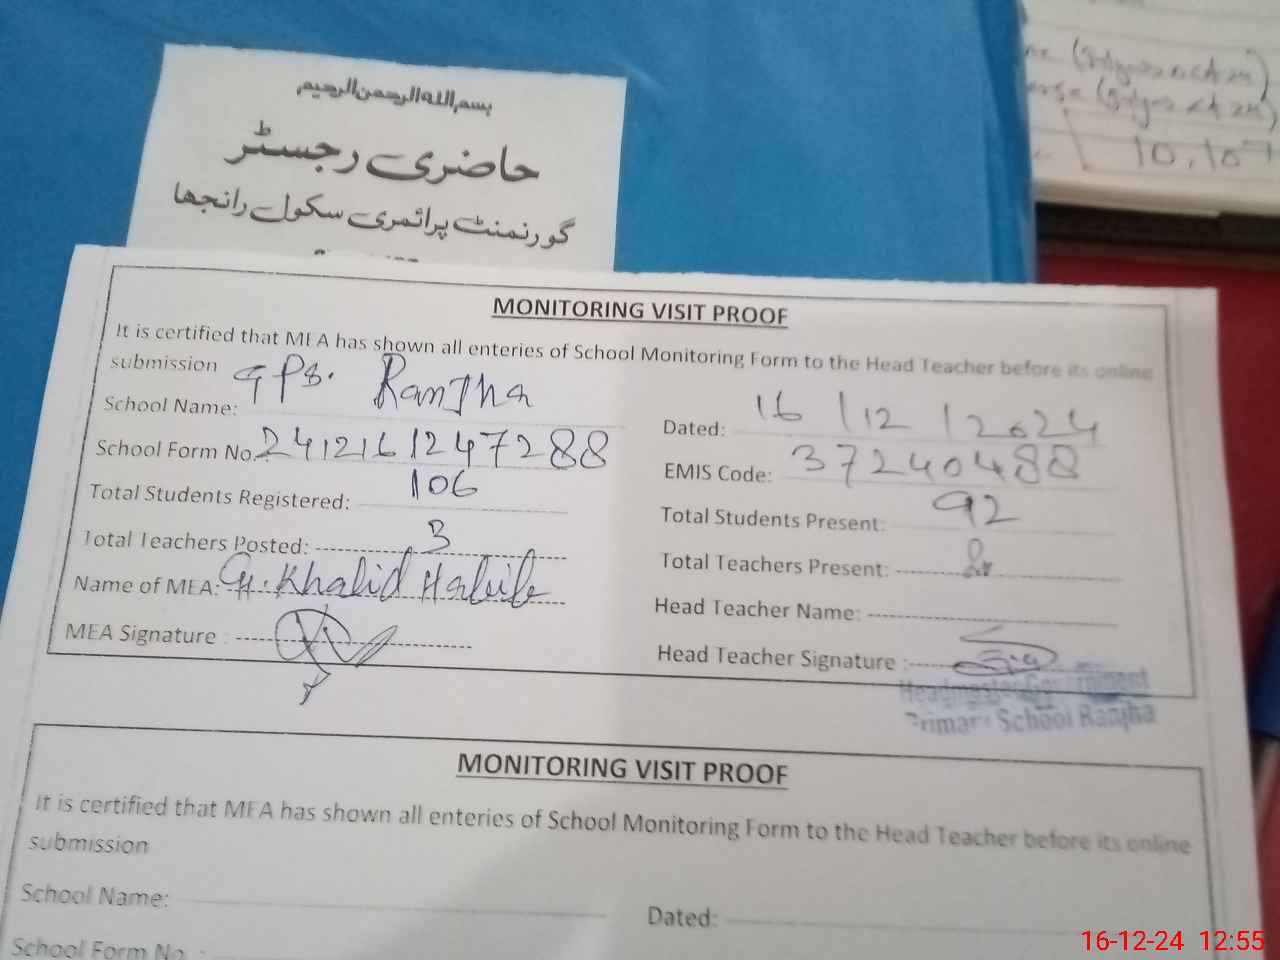 بسم اللہ الرحمن الرحیم
حاضری رجسٹر
گورنمنٹ پرائمری سکول رانجھا
10,107
MONITORING VISIT PROOF
It is certified that MEA has shown all enteries of School Monitoring Form to the Head Teacher before its online
submission
School Name: GPS. Ranjha
Dated: 16/12/2024
School Form No.: 2412161247288
EMIS Code: 37240488
Total Students Registered: 106
Total Students Present: 92
Total Teachers Posted: 3
Total Teachers Present:
Name of MEA: Gh. Khalid Habib
Head Teacher Name:
MEA Signature :
Head Teacher Signature :
Headmaster Government
Primary School Ranjha
MONITORING VISIT PROOF
It is certified that MEA has shown all enteries of School Monitoring Form to the Head Teacher before its online
submission
School Name:
Dated:
School Form No. :
16-12-24 12:55